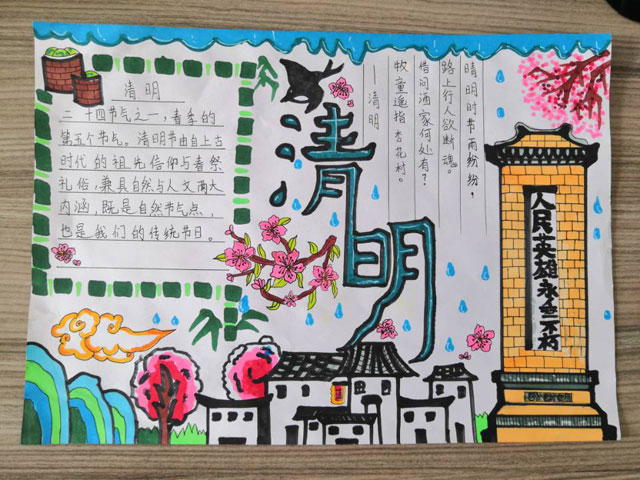 清明
二十四节气之一,春季的
第五个节气。清明节由自上古
时代的祖先信仰与春祭
礼俗,兼具自然与人文两大
内涵,既是自然节气点,
也是我们的传统节日。
清明
晴明时节雨纷纷,
路上行人欲断魂。
借问酒家何处有?
牧童遥指杏花村。
——清明
人民英雄永垂不朽